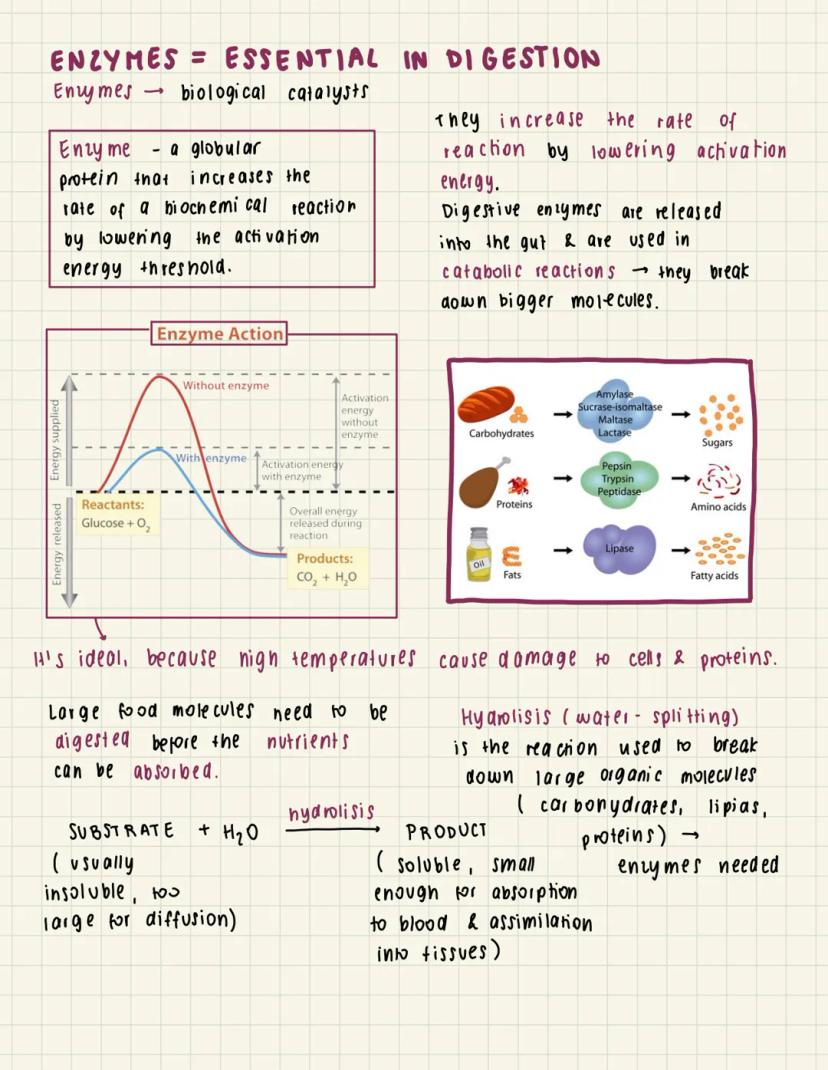 ENZYMES = ESSENTIAL IN DIGESTION
Enzymes → biological catalysts
Enzyme - a globular
protein that increases the
rate of a biochemical reaction
by lowering the activation
energy threshold.
They increase the rate of
reaction by lowering activation
energy.
Digestive enzymes are released
into the gut & are used in
catabolic reactions → they break
down bigger molecules.
Enzyme Action
Energy supplied
Energy released
Without enzyme
With enzyme
Activation
energy
without
enzyme
Activation energy
with enzyme
Overall energy
released during
reaction
Reactants:
Glucose + O₂
Products:
CO₂ + H₂O
Carbohydrates
Amylase
Sucrase-isomaltase
Maltase
Lactase
Sugars
Proteins
Pepsin
Trypsin
Peptidase
Amino acids
Oil
Fats
Lipase
Fatty acids
It's ideal, because high temperatures cause damage to cells & proteins.
Large food molecules need to be
digested before the nutrients
can be absorbed.
Hydrolisis (water-splitting)
is the reaction used to break
down large organic molecules
(carbohydrates, lipids,
proteins) →
enzymes needed
SUBSTRATE + H₂O hydrolisis → PRODUCT
(usually
insoluble, too
large for diffusion)
(soluble, small
enough for absorption
to blood & assimilation
into tissues)